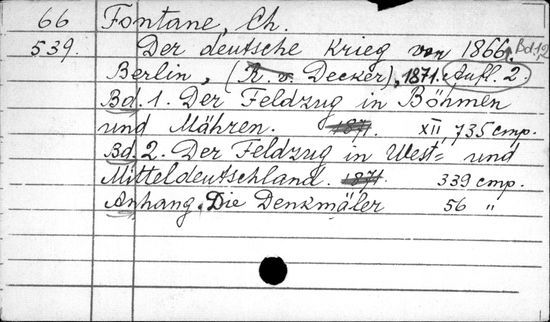 66 Fontane, Th.
539. Der deutsche Krieg von 1866. Bd. 1,2
Berlin, (R. v. Decker), 1871. Aufl. 2.
Bd. 1. Der Feldzug in Böhmen
und Mähren. 1871. XII, 735 стр.
Bd. 2. Der Feldzug in West= und
Mitteldeutschland. 1871. 339 стр.
Anhang. Die Denkmäler 56 "